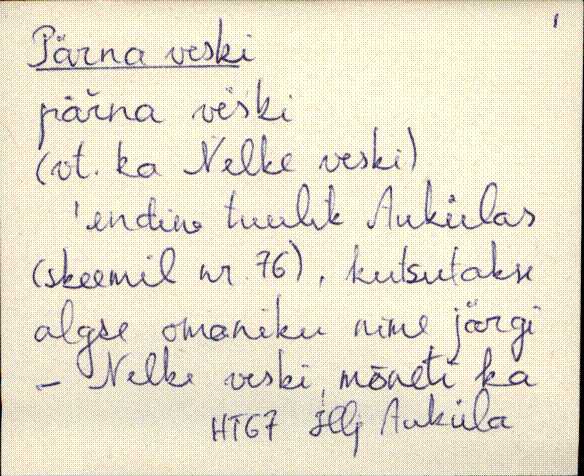 1
Pärna veski
pär̆na vèski
(vt. ka Nelke veski)
'endine tuulik Aukülas
(skeemil nr. 76), kutsutakse
algse omaniku nime järgi
– Nelke veski, mõneti ka
HT67 Auküla